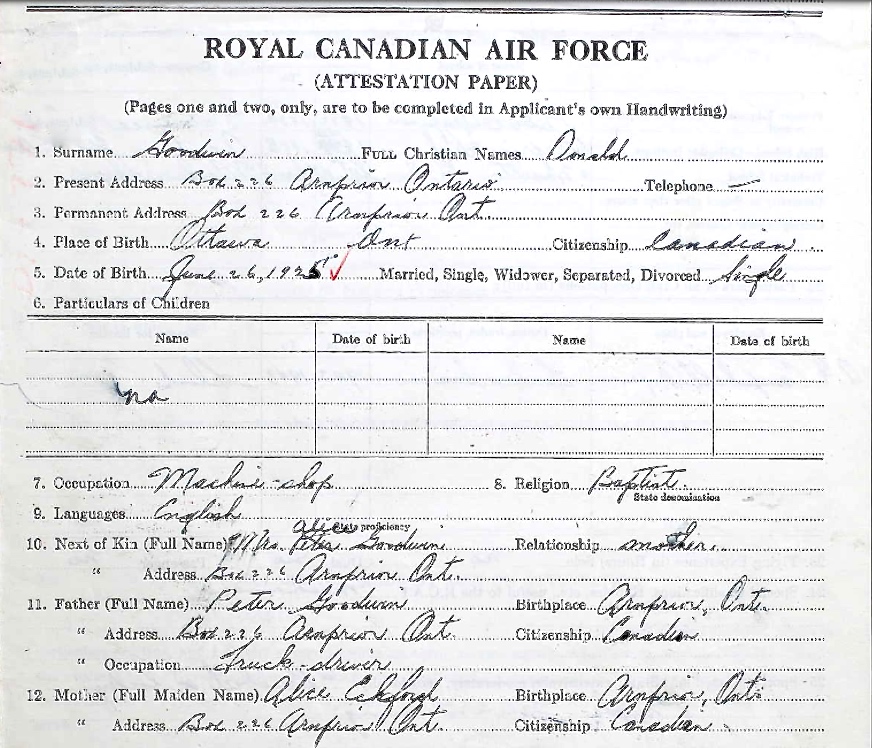 ROYAL CANADIAN AIR FORCE
(ATTESTATION PAPER)
(Pages one and two, only, are to be completed in Applicant's own Handwriting)
1. Surname Goodwin FULL Christian Names Donald
2. Present Address Box 226 Arnprior Ontario Telephone —
3. Permanent Address Box 226 Arnprior Ont.
4. Place of Birth Ottawa Ont Citizenship Canadian
5. Date of Birth June 26, 1925 ✓ Married, Single, Widower, Separated, Divorced Single
6. Particulars of Children
Name Date of birth Name Date of birth
no
7. Occupation Machine-shop 8. Religion Baptist
State denomination
9. Languages English
Alice State proficiency
10. Next of Kin (Full Name) Mrs. Peter Goodwin Relationship mother
" Address Box 226 Arnprior Ont.
11. Father (Full Name) Peter Goodwin Birthplace Arnprior, Ont.
" Address Box 226 Arnprior Ont. Citizenship Canadian
" Occupation Truck-driver
12. Mother (Full Maiden Name) Alice Eckford Birthplace Arnprior, Ont.
" Address Box 226 Arnprior Ont. Citizenship Canadian